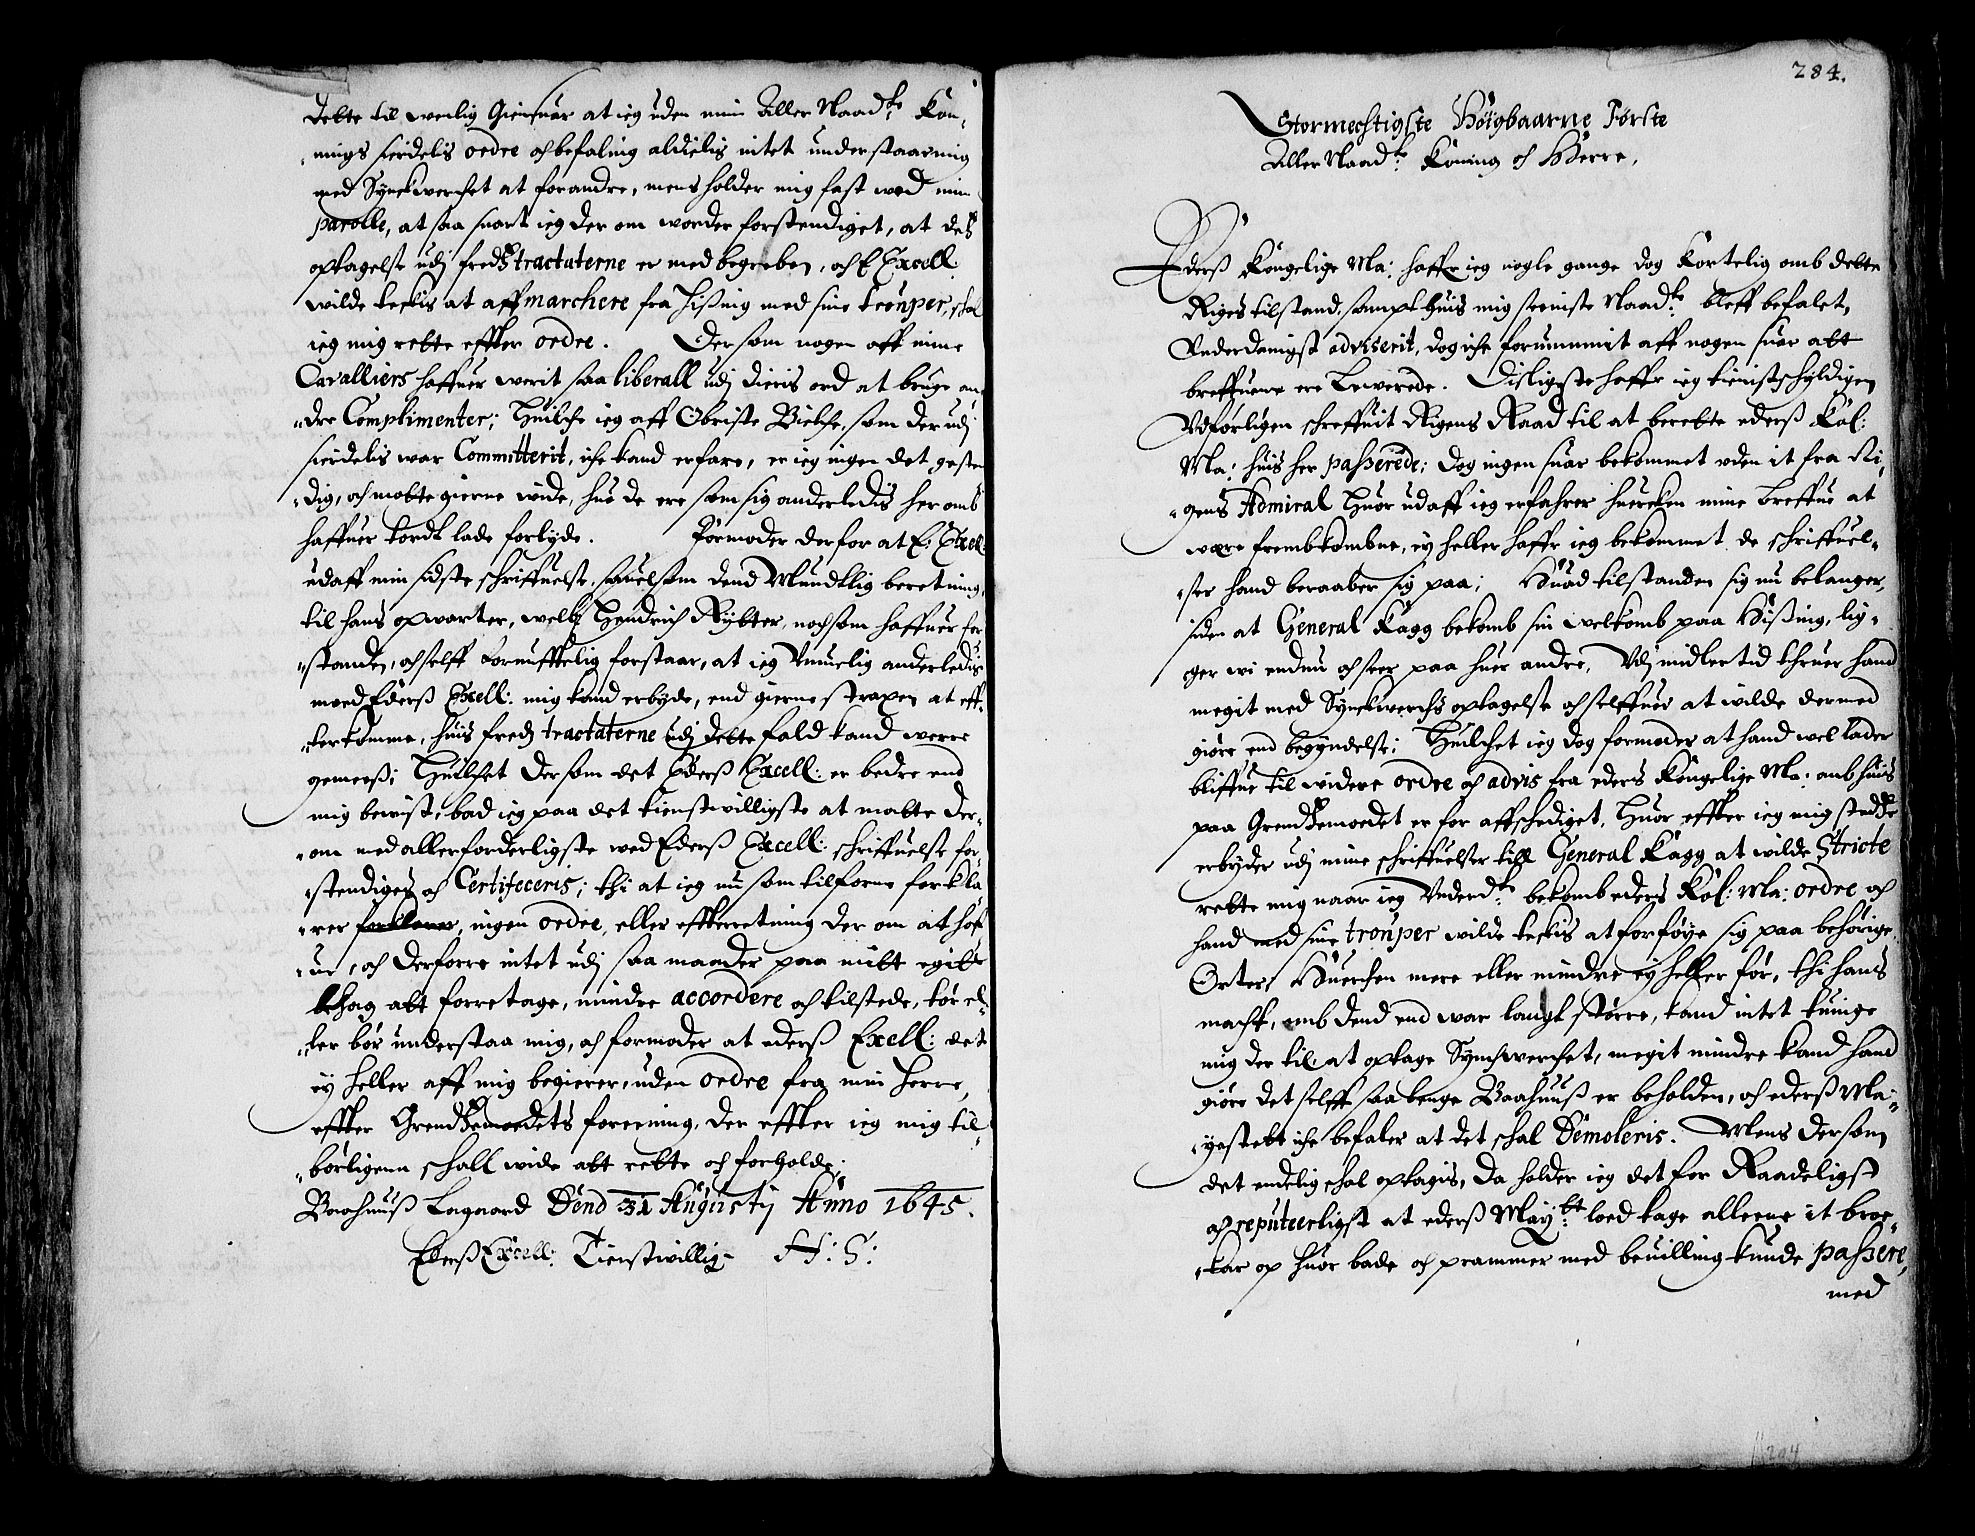 dette til wenlig Giensuar at ieg uden min Aller Naad:ste Kon-
nings sierdelis ordre och befaling aldielis intet understaar mig
med Synckwerchet at forandre, mens holder mig fast wed min
parolle, at saa snart ieg der om worder forstendiget, at dets
optagelse udj freds tractaterne er med begreben, och E Excell:
wilde teckis at aff marchere fra Hißing med sine troupper, skal
ieg mig rette effter ordre. Der som nogen aff mine
Cavalliers haffuer werit saa liberall udj dieris ord at bruge an-
dre Complimenter; Huilche ieg aff Obriste Bielche, som der udj
sierdelis war Committerit, iche kand erfare, er ieg ingen det gesten-
dig, och motte gierne wide, huo de ere som sig anderledis her omb
haffuer tordt lade forlyde. Formoder derfor at E: Excell:
udaff min sidste schriffuelse, sauelsom dend Mundtlig beretning,
til hans opwarter, welb: Hendrich Rÿtter, nochsom haffuer for-
standen, och selff fornufftelig forstaar, at ieg Umuelig anderledis
moed Ederß Excell: mig kand erbyde, end gierne straxen at eff-
terkomme, huis freds tractaterne udj dette fald kand werre
gemeeß; Huilchet der som det Ederß Excell: er bedre end
mig bewist, bad ieg paa det tienstwilligste at motte der-
om med allerforderligste wed Ederß Excell: schriffuelse for-
stendiges och Certificeris; thi at ieg nu som tilforne forkla-
rer forklarer, ingen ordre, eller effterretning der om at haff-
ue, och derforre intet udj saa maader paa mit egit
behag att forretage, mindre accordere och tilstede, tør el-
ler bør understaa mig, och formoder at ederß Exell: det
ey heller aff mig begierer, uden ordre fra min Herre,
effter Grendtzemoedets foreening, der effter ieg mig til-
børligenn schall wide att rette och forholde;
Baahuuß Lagaard Dend 31 Augustij Anno 1645.
Ederß Excell: Tienstwillig H: S:
284.
Stormechtigste Høigbaarne Første
Aller Naad:ste Koning och Herre,
Ederß Kongelige Ma: haffr ieg nogle gange dog kortelig omb dette
Riges tilstand, sampt huis mig seeniste Naad:ste bleff befalet,
Underdanigst adviserit, dog iche fornummit aff nogen suar att
breffuene ere Lewerede. Disligste haffr ieg tienistschyldigen
Udførligen schreffuit Rigens Raad til at berette ederß Kol:
Ma: huis her passerede; dog ingen suar bekommet uden it fra Ri-
gens Admiral Huor udaff ieg erfahrer huercken mine breffue at
were frembkombne, ey heller haffr ieg bekommet de schriffuel-
ser hand beraaber sig paa; Huad tilstanden sig nu belanger,
siden at General Kagg bekomb sin welkomb paa Hißing, lig-
ger wi endnu och seer paa huer andre, Udj midlertid thruer hand
megit med Synckwerchs optagelse och selffuer at wilde dermed
giøre end begyndelse; Huilchet ieg dog formoder at hand wel lader
bliffue til widere ordre och advis fra eders Kongelige Ma: omb huis
paa Grendtzemoedet er for affschediget, Huor effter ieg mig stedtze
erbyder udj mine schriffuelser till General Kagg at wilde Stricte
rette mig naar ieg Underd:ste bekomb eders Kol: Ma: ordre och
hand med sine troupper wilde teckis at forføye sig paa behørige
Orter, Huerchen mere eller mindre ey heller før, thi hans
macht, omb dend end war langt større, kand intet tuinge
mig der til at optage Synchwerchet, megit mindre kand hand
giøre det selff saa lenge Baahuuß er beholden, och ederß Ma-
yestett iche befaler at det schal Demoleris. Mens dersom
det endelig schal optagis, da holder ieg det for Raadeligst
och reputeerligst at ederß May:tt loed tage alleene it broe-
kar op huor bade och prammer med bewilling kunde passere,
med